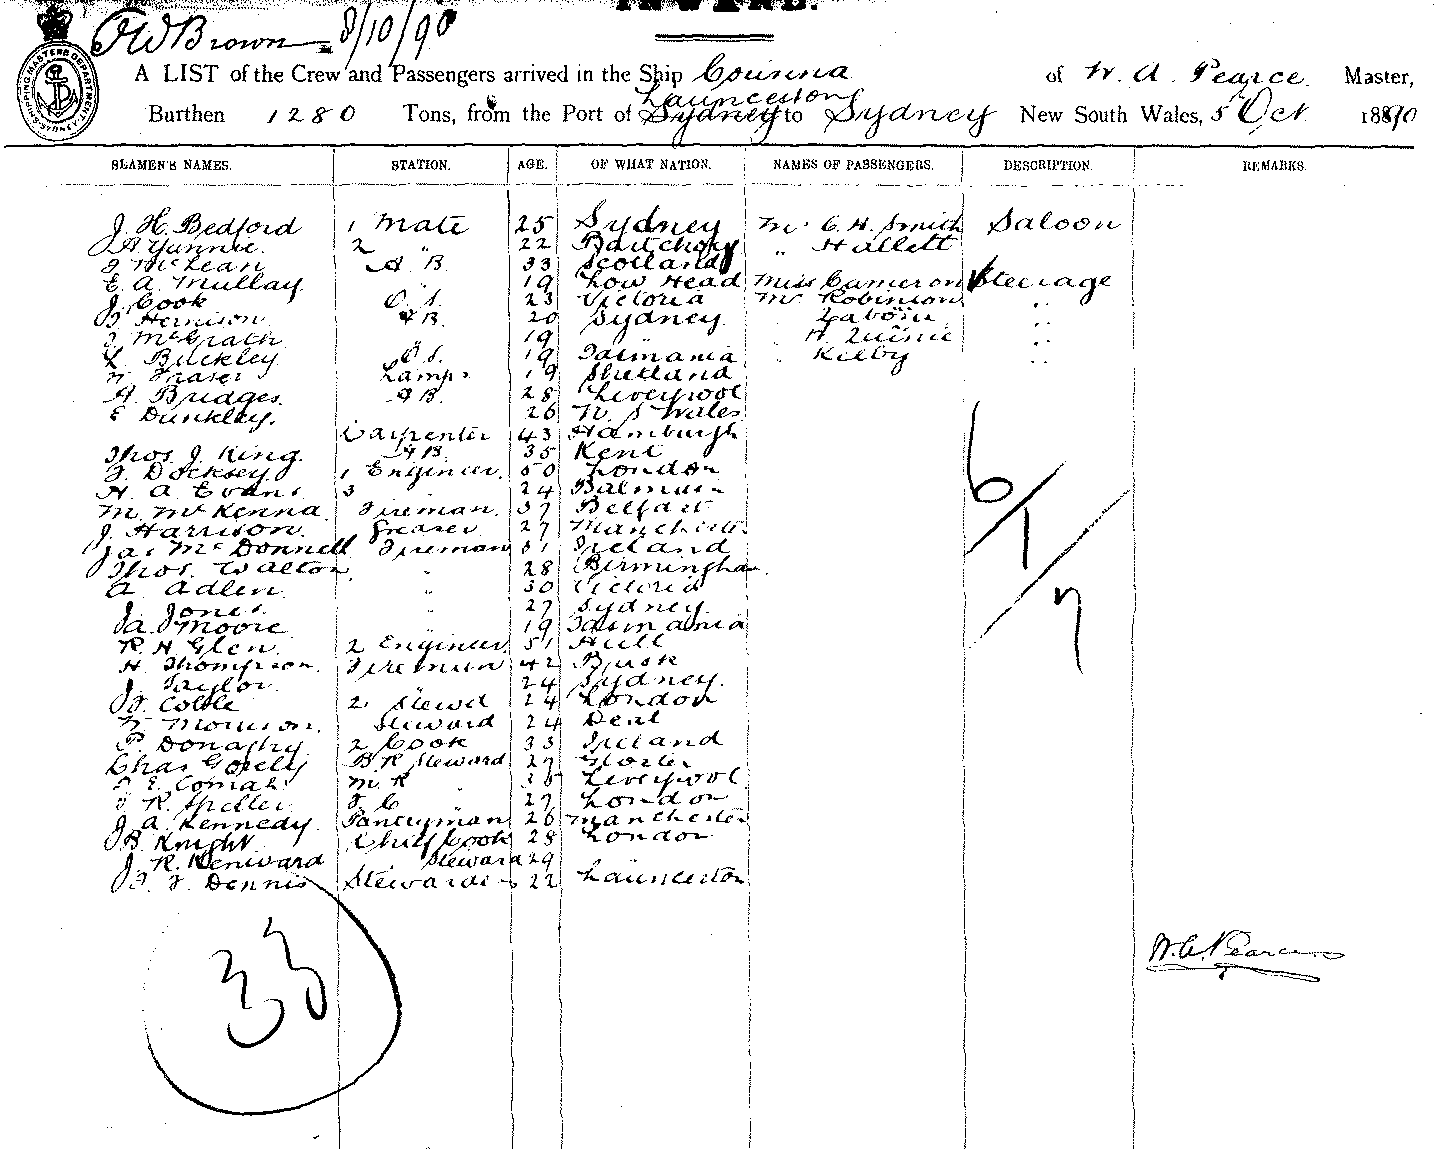 INWARD.
F W Brown 8/10/90
SHIPPING MASTERS DEPARTMENT SYDNEY
A LIST of the Crew and Passengers arrived in the Ship Corinna of W. A. Pearce Master,
Launceston
Burthen 1280 Tons, from the Port of Sydney to Sydney New South Wales, 5 Oct 1890
SEAMEN'S NAMES. STATION. AGE. OF WHAT NATION. NAMES OF PASSENGERS. DESCRIPTION. REMARKS.
J. H. Bedford 1 Mate 25 Sydney Mr C. H. Smith Saloon
2 " 22 " Hallett
J McLean A B 33 Scotland
E. A. Mullay " 19 Low Head Miss Cameron Steerage
J. Cook O. S. 23 Victoria Mr Robinson "
J Herrison A B. 20 Sydney "
J McGrath 19 "
L Buckley O. S. 19 Tasmania " Kilby "
W Fraser Lamps 19 Shetland
A Bridges A B. 28 Liverpool
E Dunkley. 26 N. S Wales
Carpenter 43 Hamburgh
Thos J. King. A B. 35 Kent
F. Docksey 1 Engineer. 50 London
H. A. Evans 3 " 24 Balmain
M. McKenna Fireman. 37 Belfast
J. Harrison. Greaser 27 Manchester
Jas McDonnell Fireman 31 Ireland
Thos. Walton " 28 Birmingham
A Adlen " 30 Victoria
J. Jones " 27 Sydney
A. Moore " 19 Tasmania
R. H Glen. 2 Engineer 51 Hull
H Thompson. Fireman 42
J. Taylor " 24 Sydney.
2 Stewd 24 London
W Morrison. Steward 24 Deal
P. Donaghy 2 Cook 33 Ireland
Chas Gorely B R Steward 27
M. R " Liverpool
R. Speller F C " 27 London
J. A. Kennedy Pantryman 26 Manchester
B. Knight Chief Cook 28 London
J. R. Kenward Steward 29
Dennis Stewardess 22 Launceston
6/1/7
33
W. A. Pearce